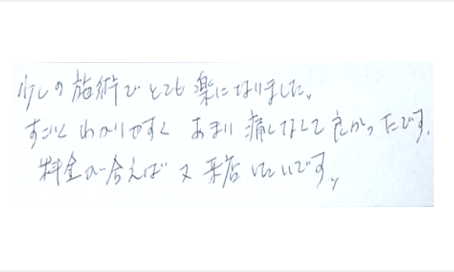 少しの施術でとても楽になりました。
すごく わかりやすく あまり 痛くなくて 良かったです。
料金が合えば 又 来店 したいです。